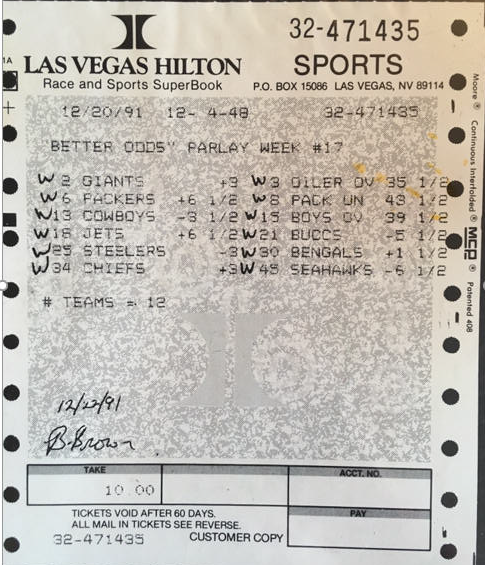 32-471435
LAS VEGAS HILTON SPORTS
Race and Sports SuperBook P.O. BOX 15086 LAS VEGAS, NV 89114
12/20/91 12- 4-48 32-471435
"BETTER ODDS" PARLAY WEEK #17
W 2 GIANTS +3 W 3 OILER OV 35 1/2
W 6 PACKERS +6 1/2 W 8 PACK UN 43 1/2
W 13 COWBOYS -3 1/2 W 15 BOYS OV 39 1/2
W 18 JETS +6 1/2 W 21 BUCCS -5 1/2
W 25 STEELERS -3 W 30 BENGALS +1 1/2
W 34 CHIEFS +3 W 45 SEAHAWKS -6 1/2
# TEAMS = 12
12/22/91
B. Brown
TAKE ACCT. NO.
10 00
PAY
TICKETS VOID AFTER 60 DAYS.
ALL MAIL IN TICKETS SEE REVERSE.
32-471435 CUSTOMER COPY
1A
Moore Continuous Interfolded MCP Patented 408